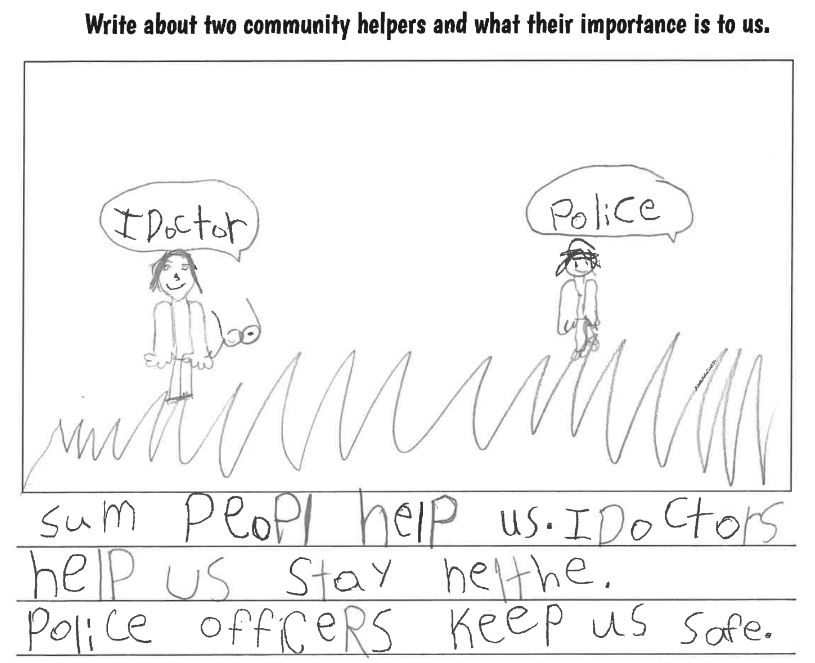 Write about two community helpers and what their importance is to us.
I Doctor
Police
sum Peopl help us. I Doctors
help us stay helthe.
Police officeRs keep us safe.